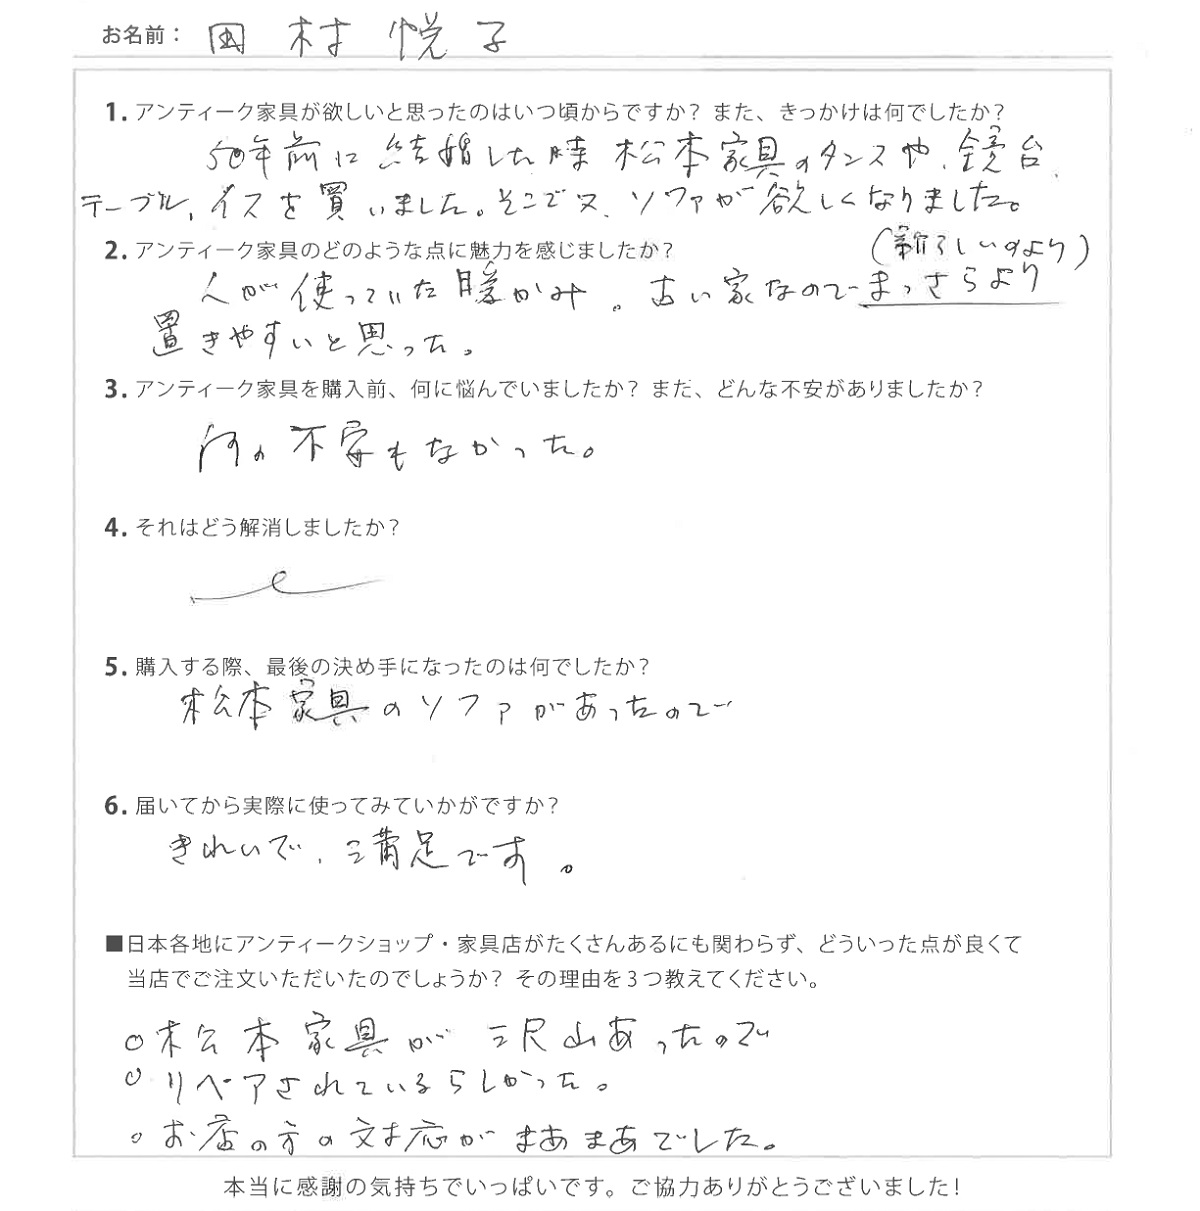 お名前： 田村悦子
1. アンティーク家具が欲しいと思ったのはいつ頃からですか？また、きっかけは何でしたか？
50年前に結婚した時松本家具のタンスや、鏡台、
テーブル、イスを買いました。そこで又、ソファが欲しくなりました。
2. アンティーク家具のどのような点に魅力を感じましたか？
（新らしいのより）
人が使っていた暖かみ。古い家なのでまっさらより
置きやすいと思った。
3. アンティーク家具を購入前、何に悩んでいましたか？また、どんな不安がありましたか？
何の不安もなかった。
4. それはどう解消しましたか？
5. 購入する際、最後の決め手になったのは何でしたか？
松本家具のソファがあったので
6. 届いてから実際に使ってみていかがですか？
きれいで、満足です。
■日本各地にアンティークショップ・家具店がたくさんあるにも関わらず、どういった点が良くて
当店でご注文いただいたのでしょうか？その理由を３つ教えてください。
○松本家具が沢山あったので
○リペアされているらしかった。
○お店の方の対応がまあまあでした。
本当に感謝の気持ちでいっぱいです。ご協力ありがとうございました！